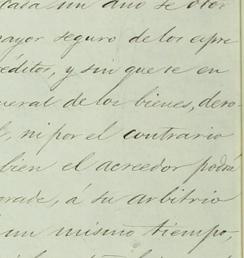 cada un año se otor
mayor seguro de los espre
reditos, y sin que se en
neral de los bienes, dero
, ni por el contrario
bien el acreedor podrá
grade, á su arbitrio
un mismo tiempo,